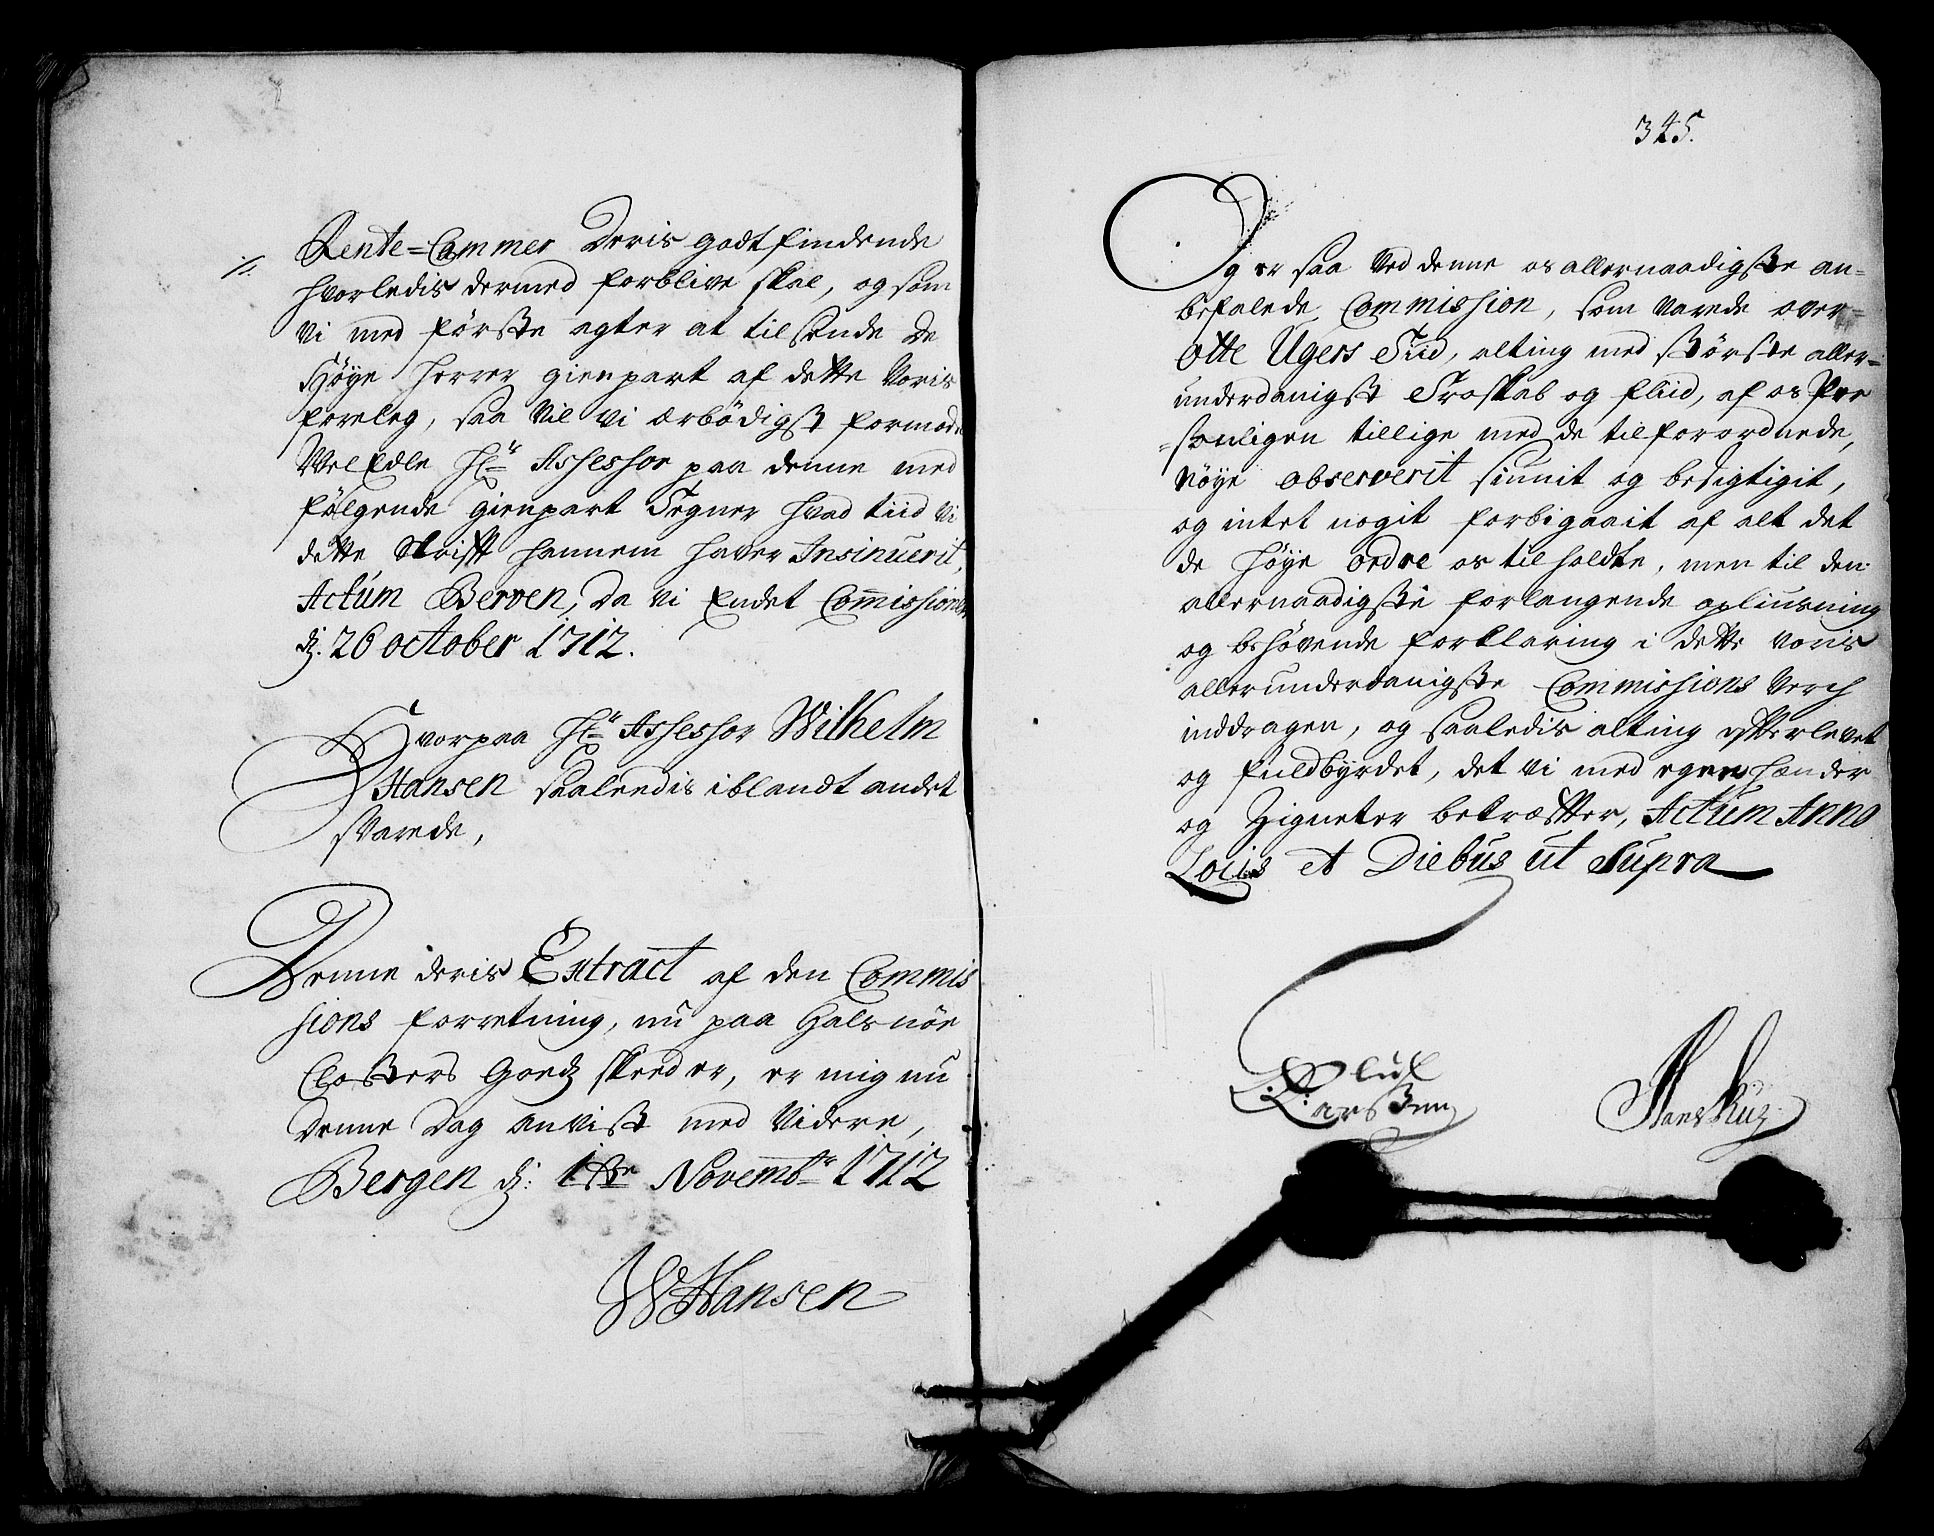 Rente=Cammer Deris godtfindende
·/. hvorledis dermed forblive skal, og som
Vi med første agter at tilsende De
Høye Herrer gienpart af dette Voris
foreleg, saa Vil vi ærbødigst formode
WelEdle Hr. Assessor paa denne med
følgende gienpart Tegner hvad tiid Vi
dette Skrift hannem haver Insinuerit,
Actum Berven, Da vi Endet Commissionen
d. 26 october 1712.
Hvorpaa Hr. Assessor Wilhelm
Hansen saaledis iblandt andet
svarede,
Denne deris Extract af den Commis
sions forretning, nu paa Halsnøe
Closters Goedz skeed er, er mig nu
Denne Dag anvist med Videre,
Bergen d: 1ste Novembr 1712
WHansen
345.
Og er saa Ved denne os allernaadigste an-
befalede Commission, som Varede over-
otte Ugers Tiid, alting med største aller=
underdanigst Troskab og fliid, af os Per
=sonligen tillige med de tilforordnede,
Nøye observerit siunit og besigtigit,
og intet nogit forbigaait af alt det
de høye ordre os tilholdte, men til den
allernaadigste forlangende opliusning
og behøvende forklaring i dette voris
allerunderdanigste Commissions Verch
inddragen, og saaledis alting efterlevet
og fuldbyrdet, det vi med egne hænder
og Zigneter bekræffter, Actum Anno
Locis et Diebus ut Supra
Oluf
Larssen
Hans Kuz